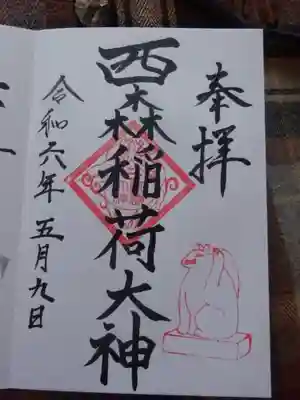 奉拝
西森稲荷大神
令和六年五月九日